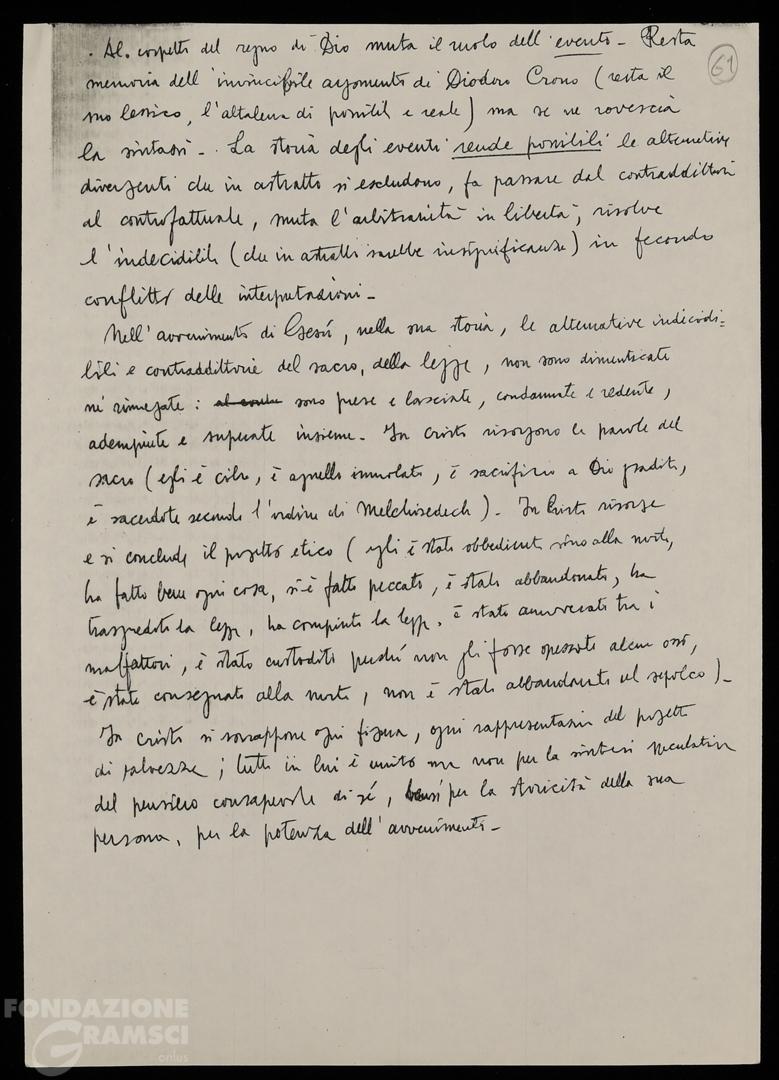 61
. Al cospetto del regno di Dio muta il ruolo dell'evento - Resta
memoria dell'invincibile argomento di Diodoro Crono (resta il
suo lessico, l'altalena di possibile e reale) ma se ne rovescia
la sintassi - . La storia degli eventi rende possibili le alternative
divergenti che in astratto si escludono, fa passare dal contraddittorio
al controfattuale, muta l'arbitrarietà in libertà, risolve
l'indecidibile (che in astratto sarebbe insignificanza) in fecondo
conflitto delle interpretazioni -
Nell'avvenimento di Gesù, nella sua storia, le alternative indecidi=
bili e contraddittorie del sacro, della legge, non sono dimenticate
né rinnegate : sono prese e lasciate, condannate e redente,
adempiute e superate insieme - In Cristo risorgono le parole del
sacro (egli è cibo, è agnello immolato, è sacrificio a Dio gradito,
è sacerdote secondo l'ordine di Melchisedech) - In Cristo risorge
e si conclude il progetto etico (egli è stato obbediente sino alla morte,
ha fatto bene ogni cosa, si è fatto peccato, è stato abbandonato, ha
trasgredito la legge, ha compiuto la legge, è stato annoverato tra i
malfattori, è stato custodito perché non gli fosse spezzato alcun osso,
è stato consegnato alla morte, non è stato abbandonato nel sepolcro) -
In Cristo si sovrappone ogni figura, ogni rappresentazione del progetto
di salvezza ; tutto in lui è unito ma non per la sintesi speculativa
del pensiero consapevole di sé, bensì per la storicità della sua
persona, per la potenza dell'avvenimento -
FONDAZIONE
GRAMSCI
onlus